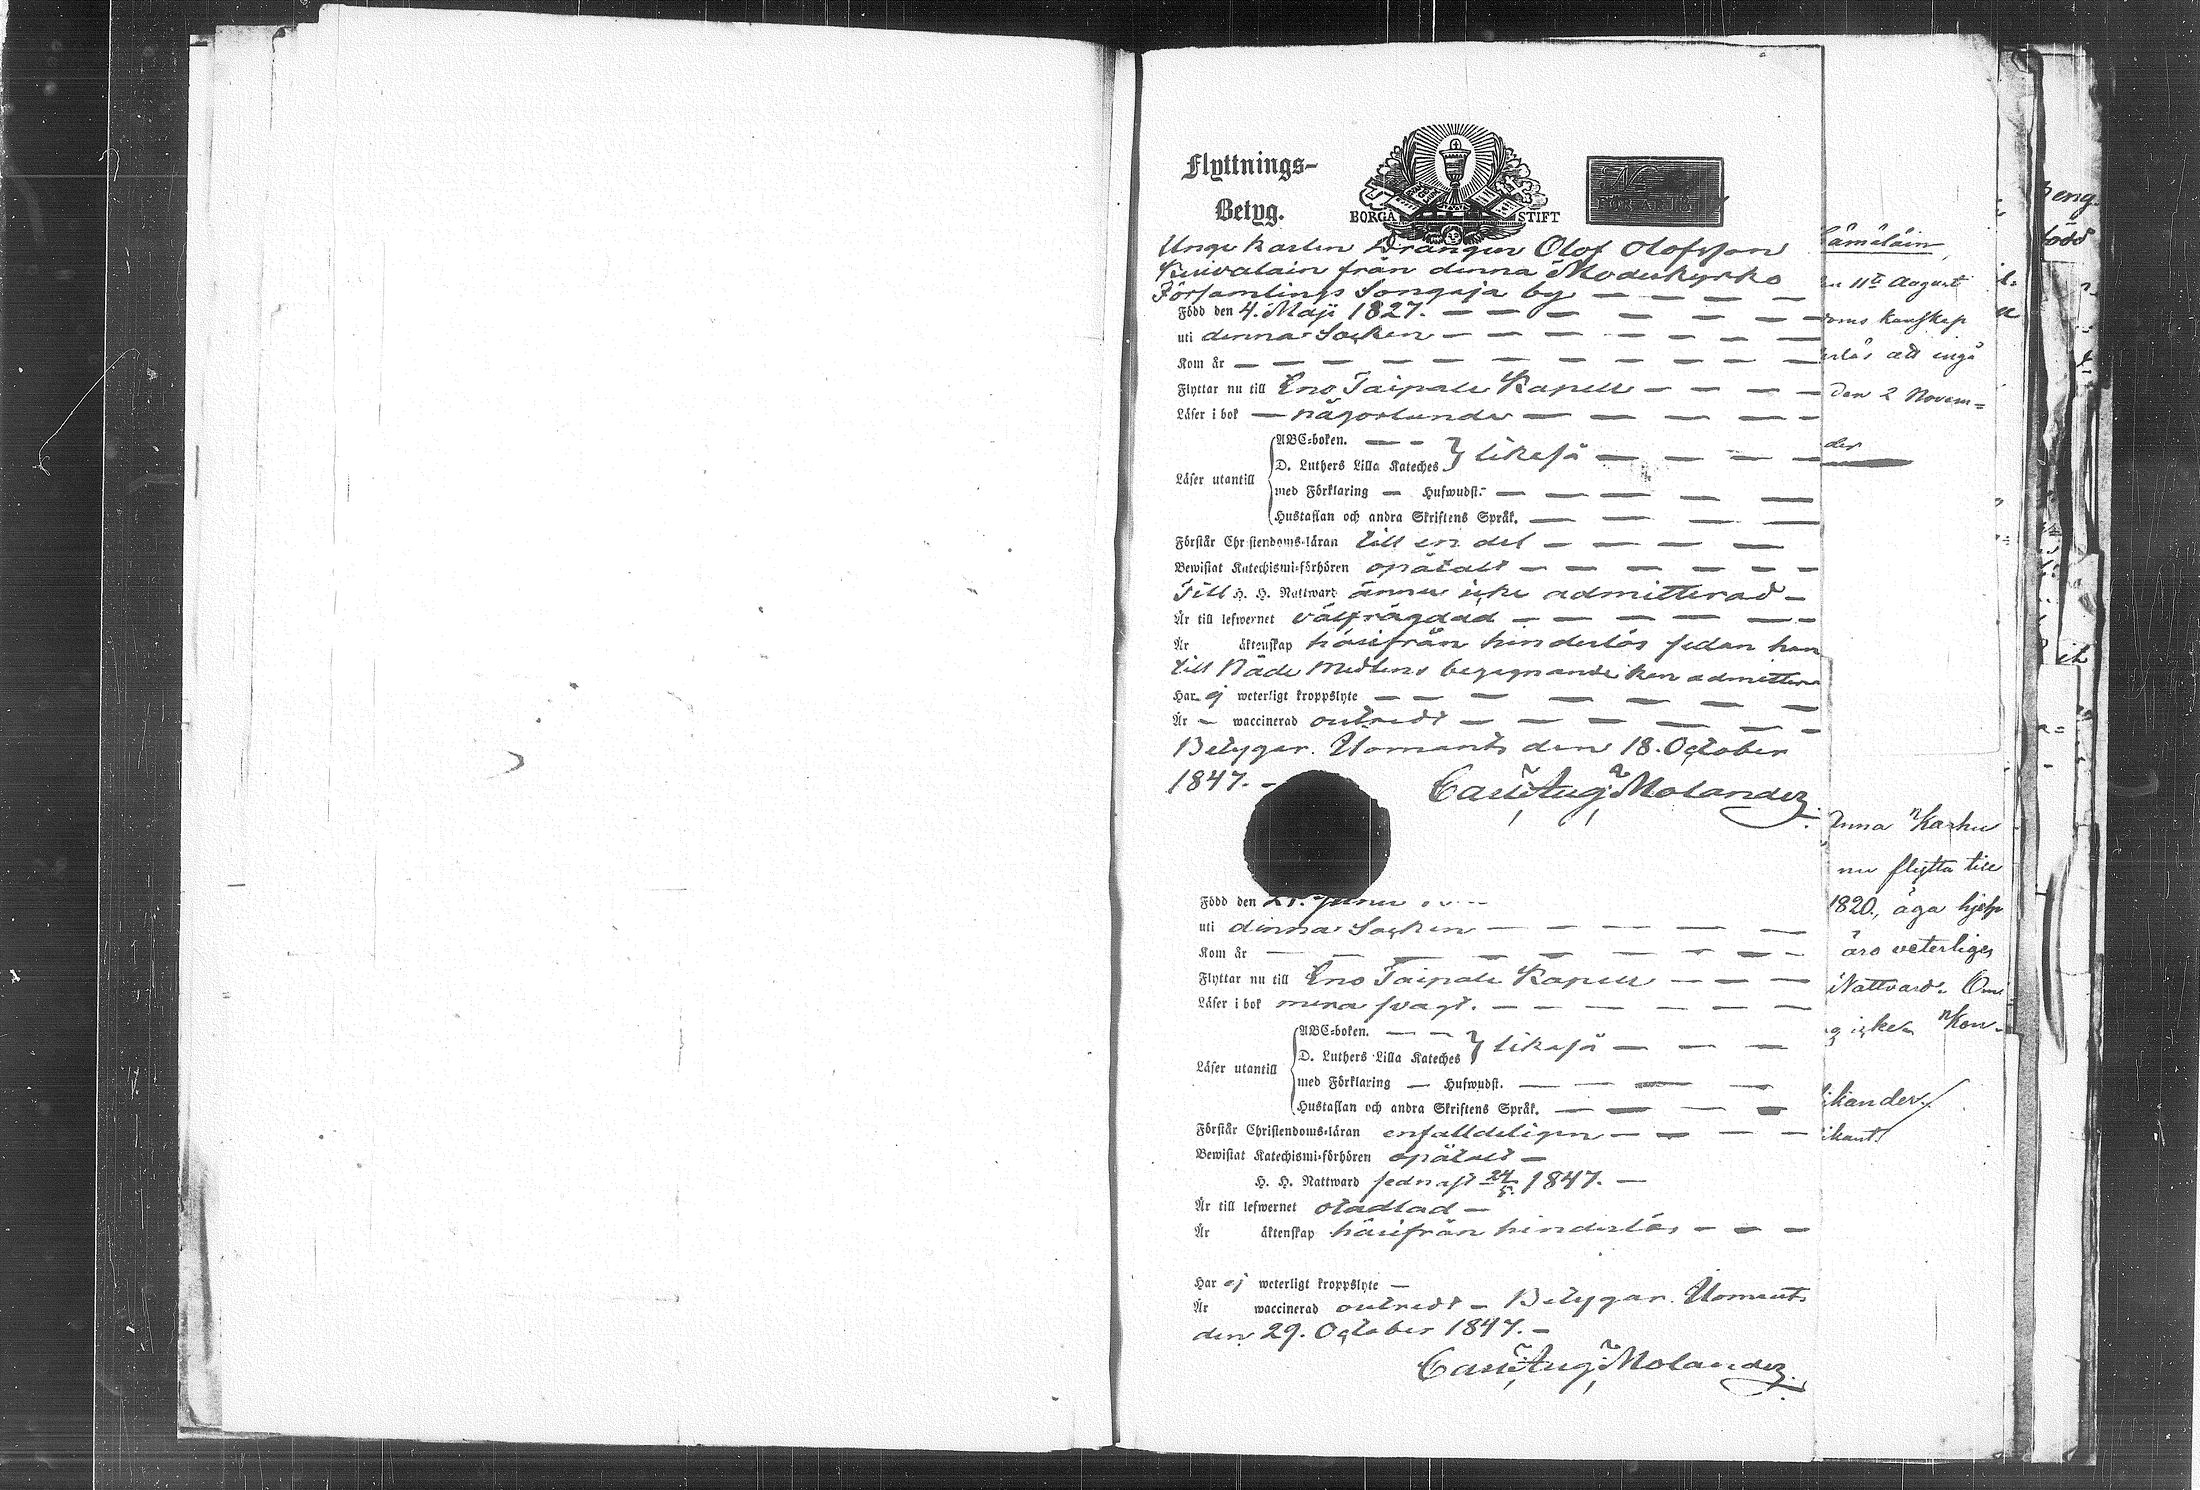 Flyttnings-
Betyg.
BORGÅ STIFT
Unge karlen Drängen Olof Olofsson
Kuivalain från denna Moderkyrko
Församlings Songaja by — — — —
Född den 4. Maji 1827. — — — — — —
uti denna Socken — — — — — — —
Kom år — — — — — — — — —
Flyttar nu till Eno Taipale Kapell — — — —
Läser i bok — någorlunda — — — — —
ABC-boken. — —
D. Luthers Lilla Kateches } likaså — — — —
Läser utantill
med Förklaring — Hufwudst. — — — — —
Hustaflan och andra Skriftens Språk. — — — — —
Förstår Christendoms-läran till en del — — — —
Bewistat Katechismi-förhören opåtalt — — — — — —
Till H. H. Nattward ännu icke admitterad —
Är till lefwernet välfrägdad — — — — — —
Är äktenskap härifrån hinderlös sedan han
till Nåde Medlens begagnande kan admitteras
Har ej weterligt kroppslyte — — — — — —
Är — waccinerad outredt — — — — — —
Betygar. Ilomants den 18. October
1847. —
Carl Aug. Molander.
Född den 21. Junii
uti denna Socken — — — — —
Kom år — — — — — — — —
Flyttar nu till Eno Taipale Kapell — — —
Läser i bok mera svagt. — — — — — —
ABC-boken. — —
D. Luthers Lilla Kateches } likaså — — —
Läser utantill
med Förklaring — Hufwudst. — — — —
Hustaflan och andra Skriftens Språk. — — — —
Förstår Christendoms-läran enfalldeligen — — — —
Bewistat Katechismi-förhören opåtalt —
H. H. Nattward sednast 24/5. 1847. —
Är till lefwernet otadlad —
Är äktenskap härifrån hinderlös — — —
Har ej weterligt kroppslyte —
Är waccinerad outredt — Betygar. Ilomants
den 29. October 1847. —
Carl Aug. Molander.
Hämäläin,
11te August
kunskap
att ingå
den 2 Novem=
der
Anna Karhu
nu flytta till
1820., äga hjelp
äro veterliges
Nattvard. Om
Kon-